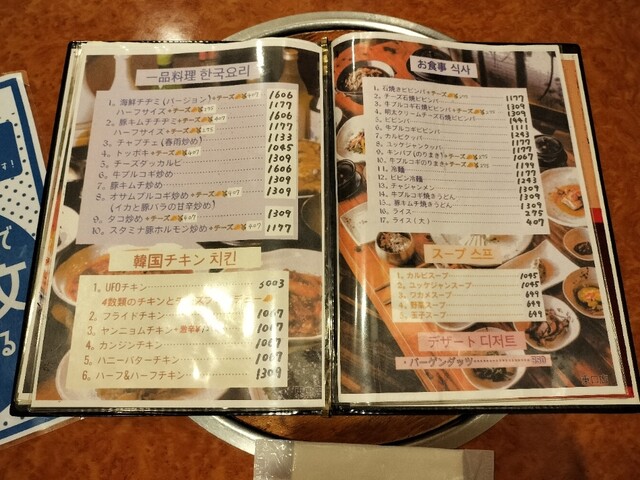 一品料理 한국요리
1、海鮮チヂミ(パーション)+チーズ 407 1606
ハーフサイズ+チーズ 275 1177
2、豚キムチチヂミ+チーズ 407 1606
ハーフサイズ+チーズ 275 1177
3、チャプチェ(春雨炒め) 1133
4、トッポキ+チーズ 407 1045
5、チーズタッカルビ 1309
6、牛プルコギ炒め 1606
7、豚キムチ炒め 1309
8、オサムプルコギ炒め+チーズ 407 1309
(イカと豚バラの甘辛炒め)
9、タコ炒め+チーズ 407 1309
10、スタミナ豚ホルモン炒め+チーズ 407 1177
韓国チキン 치킨
1、UFOチキン 3003
4数類のチキンとチーズ
2、フライドチキン 1067
3、ヤンニョムチキン+激辛
4、カンジンチキン 1067
5、ハニーバターチキン 1067
6、ハーフ&ハーフチキン 1309
お食事 식사
1、石焼きビビンバ+チーズ 275
2、チーズ石焼ビビンバ 1177
3、牛プルコギ石焼ビビンバ+チーズ 275 1309
4、明太クリームチーズ石焼ビビンバ 1441
5、ビビンバ 1111
6、牛プルコギビビンバ 1243
7、カルビクッパ 1177
8、ユッケジャンクッパ 1177
9、キンパプ(のりまき)+チーズ 275 1067
10、牛プルコギ(のりまき)+チーズ 275 1199
11、冷麺 1177
12、ビビン冷麺 1243
13、チャジャンメン 1309
14、牛プルコギ焼きうどん 1309
15、豚キムチ焼きうどん 1309
16、ライス 275
17、ライス(大) 407
スープ 스프
1、カルビスープ 1045
2、ユッケジャンスープ 1045
3、ワカメスープ 649
4、野菜スープ 649
5、玉子スープ 649
デザート 디저트
・バーゲンダッツ